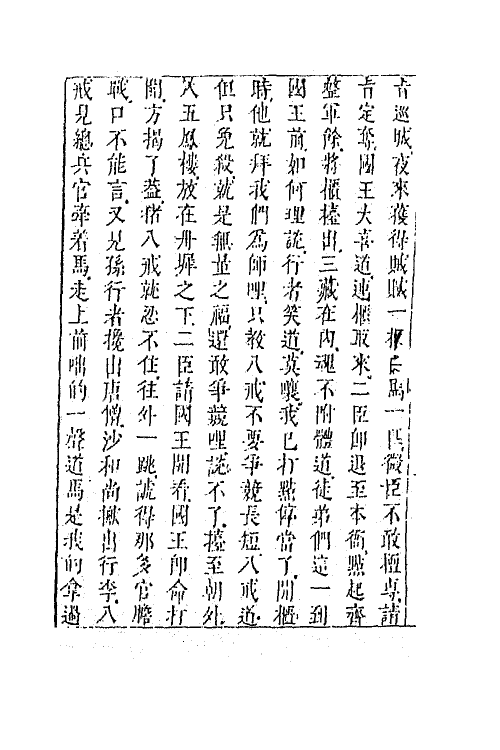 旨巡城夜來獲得賊贓一櫃白馬一匹微臣不敢擅專請
旨定奪國王大喜道連櫃取來二臣卽退至本衙點起齊
整軍餘將櫃擡出三藏在內魂不附體道徒弟們這一到
國王前如何理說行者笑道莫嚷我已打點停當了開櫃
時他就拜我們爲師哩只敎八戒不要爭競長短八戒道
但只免殺就是無量之福還敢爭競哩說不了擡至朝外
入五鳳樓放在丹墀之下二臣請國王開看國王卽命打
開方揭了蓋猪八戒就忍不住往外一跳諕得那多官膽
戰口不能言又見孫行者攙出唐僧沙和尚搬出行李八
戒見總兵官牽着馬走上前咄的一聲道馬是我的拿過